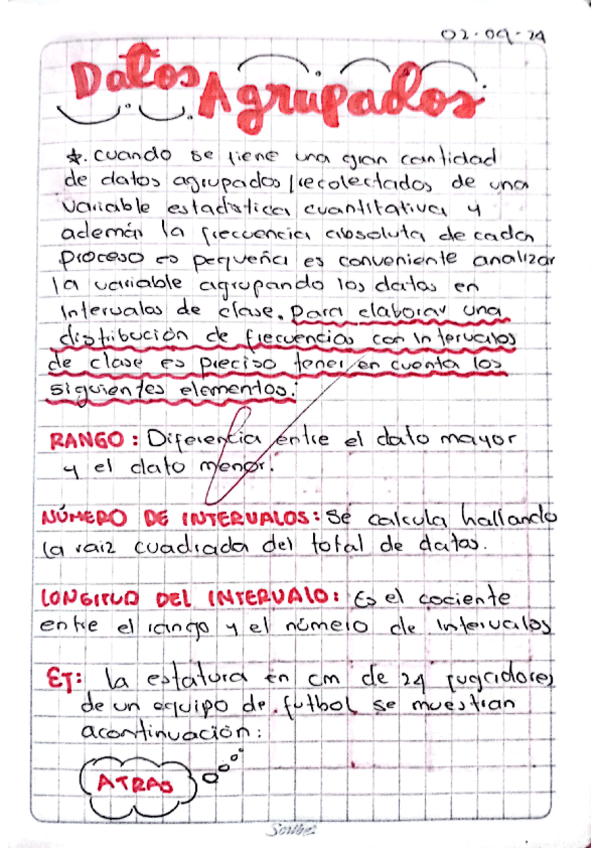 02-09-24
Datos Agrupados
*. Cuando se tiene una gran cantidad
de datos agrupados/recolectados de una
variable estadistica cuantitativa y
además la frecuencia absoluta de cada
proceso es pequeña es conveniente analizar
la variable agrupando los datos en
Intervalos de clase. Para elaborar una
distribución de frecuencias con Intervalos
de clase es preciso tener en cuenta los
siguientes elementos:
RANGO: Diferencia entre el dato mayor
y el dato menor.
NÚMERO DE INTERVALOS: Se calcula hallando
la raiz cuadrada del total de datos.
LONGITUD DEL INTERVALO: Es el cociente
entre el rango y el número de Intervalos
EJ: la estatura en cm de 24 jugadores
de un equipo de futbol se muestran
acontinuación:
ATRAS
Scribe